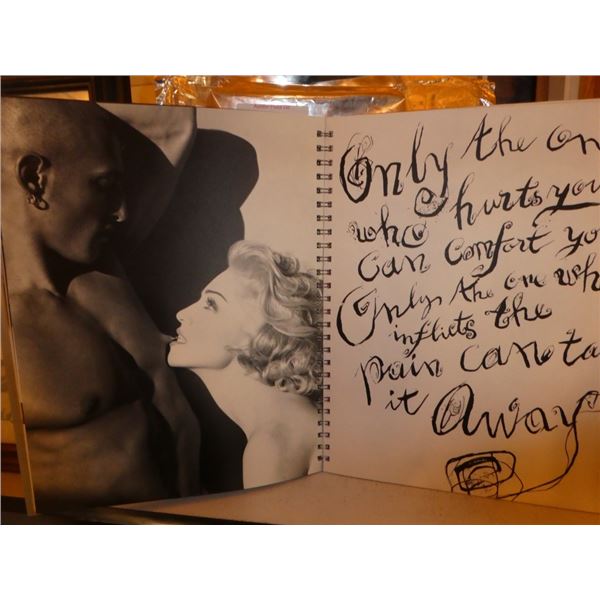 Only the on
who hurts you
can comfort yo
Only the one wh
inflicts the
pain can ta
it Away